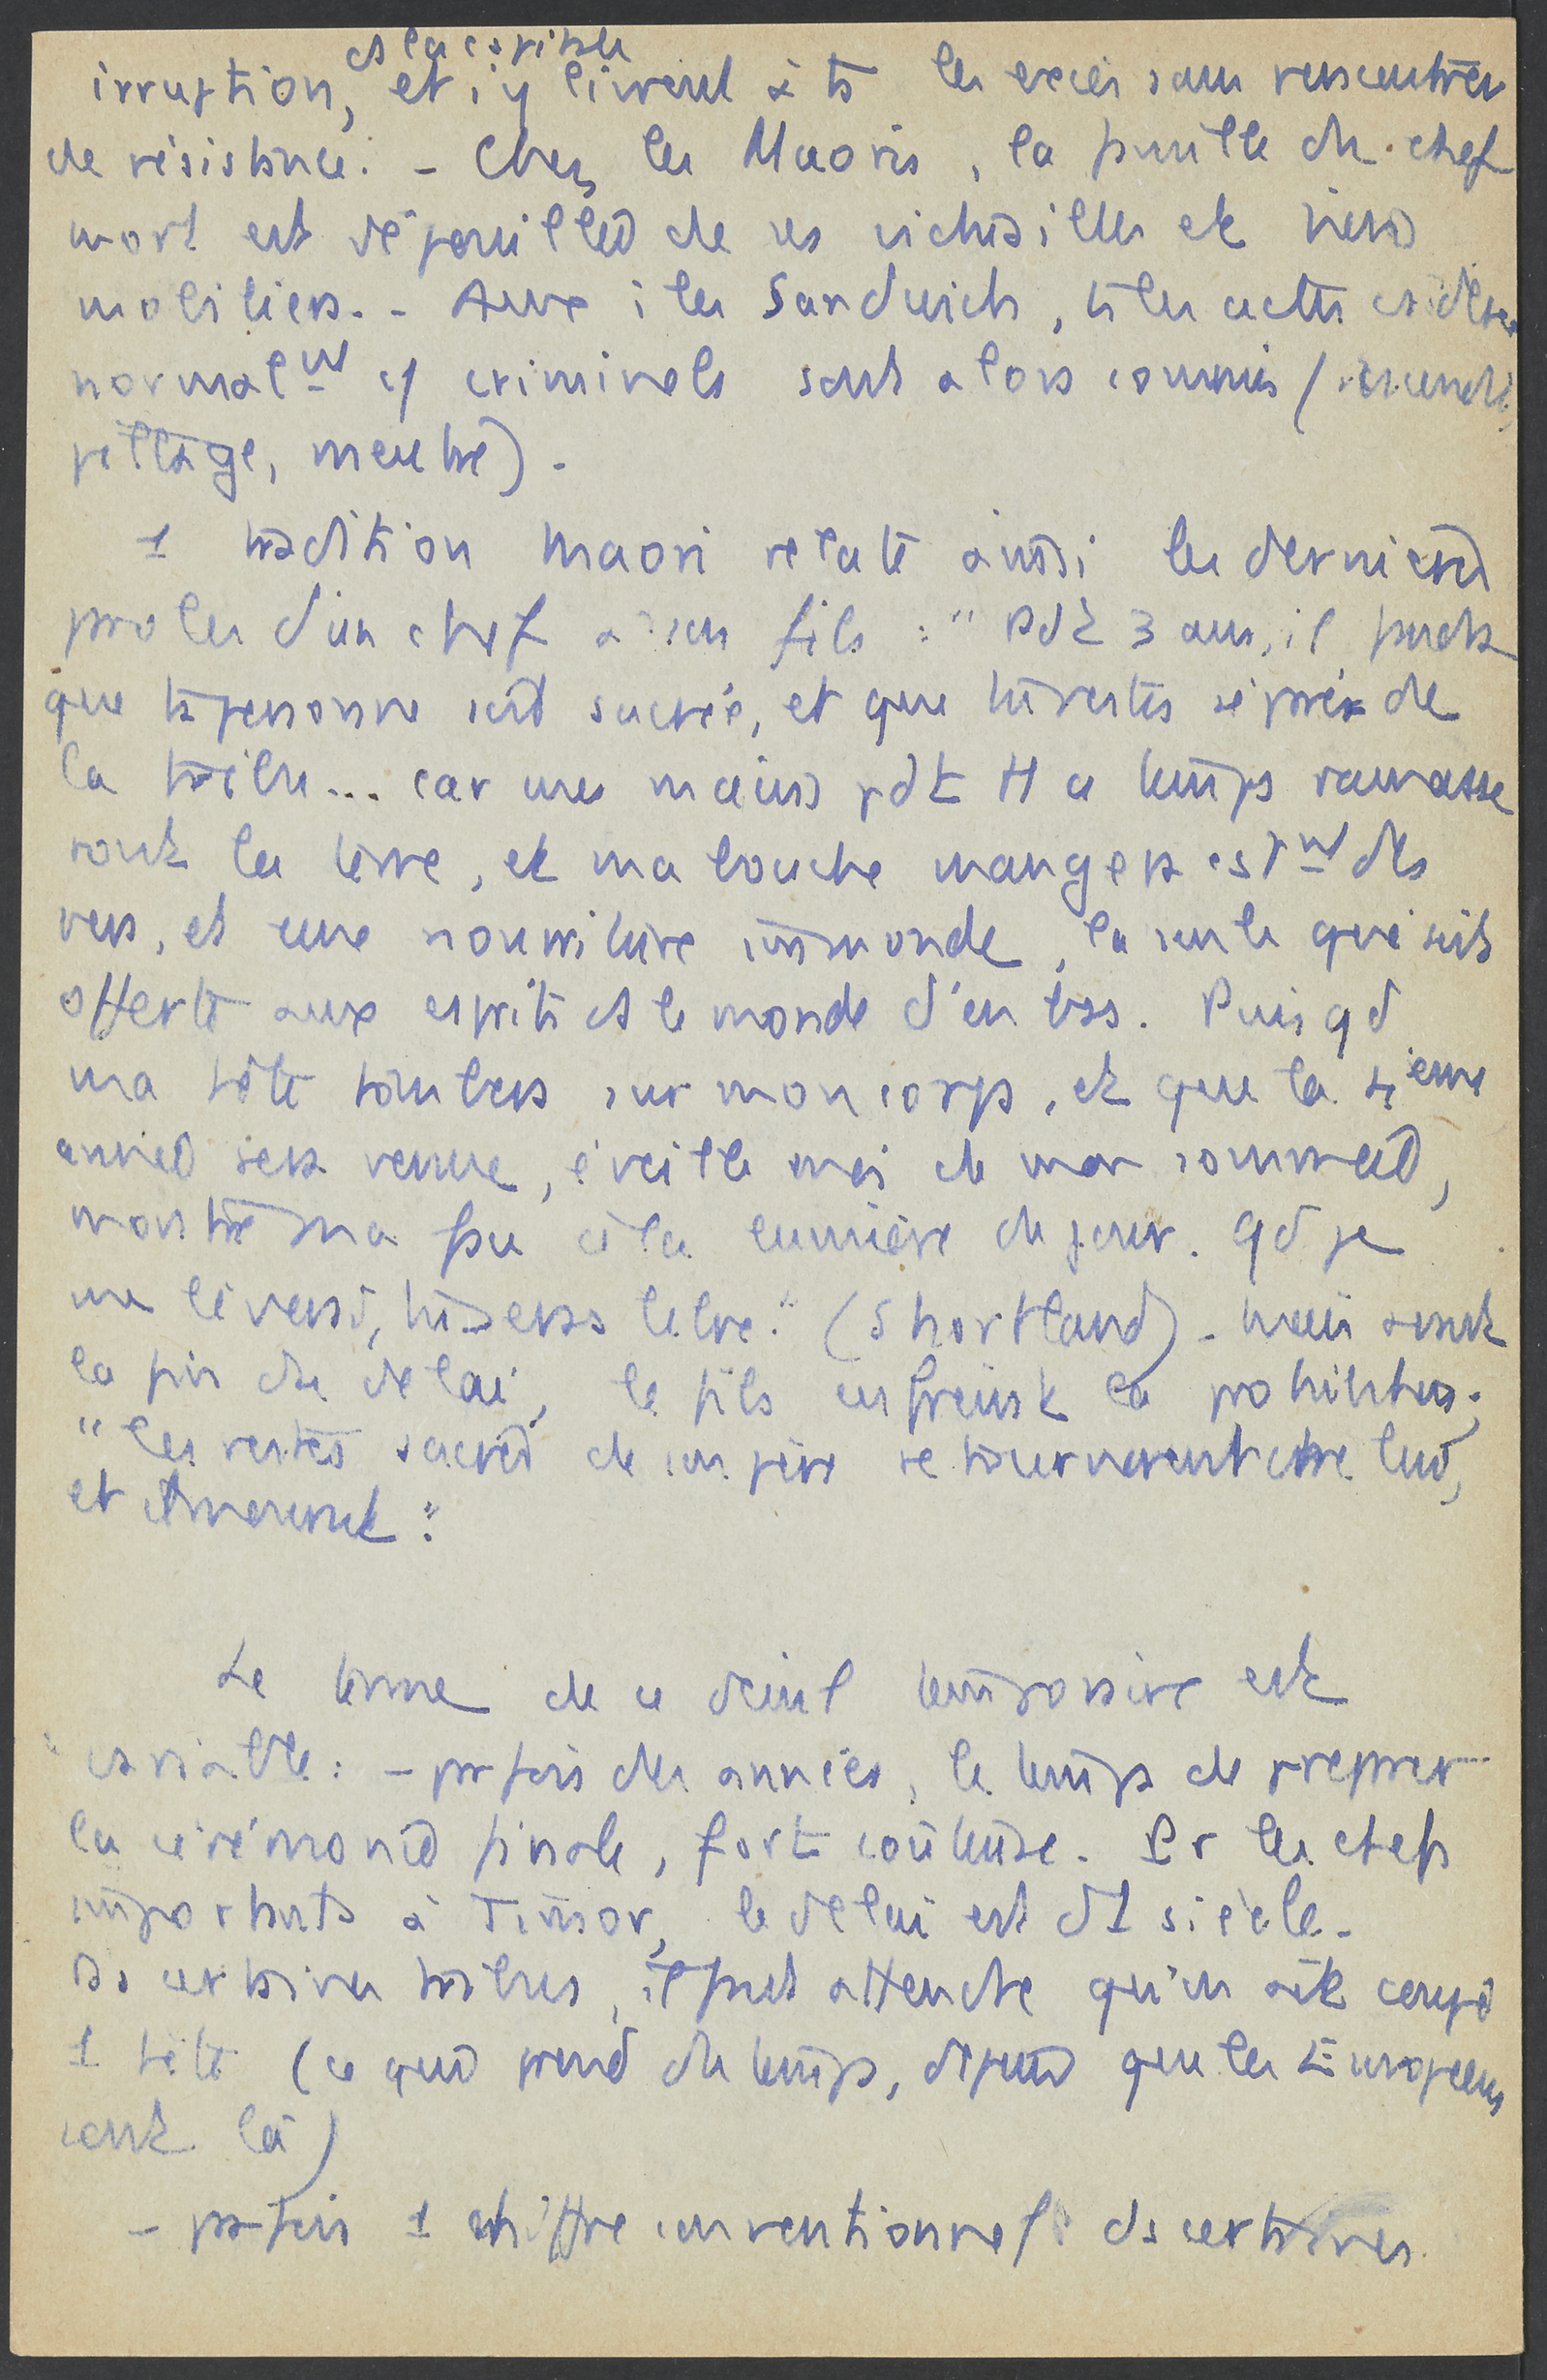 ds la capitale
irruption, et s'y livrent à ts les excès sans rencontrer
de résistance. - Chez les Maoris, la famille du chef
mort est dépouillée de ses victuailles et biens
mobiliers. - Aux îles Sandwich, ts les actes considérés
normalmt c/ criminels sont alors commis (incendie,
pillage, meurtre).
1 tradition Maori relate ainsi les dernières
paroles d'un chef à son fils : " Pdt 3 ans, il faudra
que ta personne soit sacrée, et que tu restes séparé de
la tribu... car mes mains pdt tt ce temps ramasse
ront la terre, et ma bouche mangera constmt des
vers, et une nourriture immonde, la seule qui soit
offerte aux esprits ds le monde d'en bas. Puis qd
ma tête tombera sur mon corps, et que la 4ième
année sera venue, éveille moi de mon sommeil,
montre ma face à la lumière du jour. Qd je
me lèverai, tu seras libre." (Shortland) - mais avant
la fin du délai, le fils enfreint la prohibition;
" les restes sacrés de son père se tournèrent contre lui,
et il mourut".
Le terme de ce deuil temporaire est
variable : - parfois des années, le temps de préparer
la cérémonie finale, fort coûteuse. Pr les chefs
importants à Timor, le délai est d'1 siècle.
Ds certaines tribus, il faut attendre qu'on ait coupé
1 tête (ce qui prend du temps, depuis que les Européens
sont là)
- parfois 1 chiffre conventionnel : ds certaines